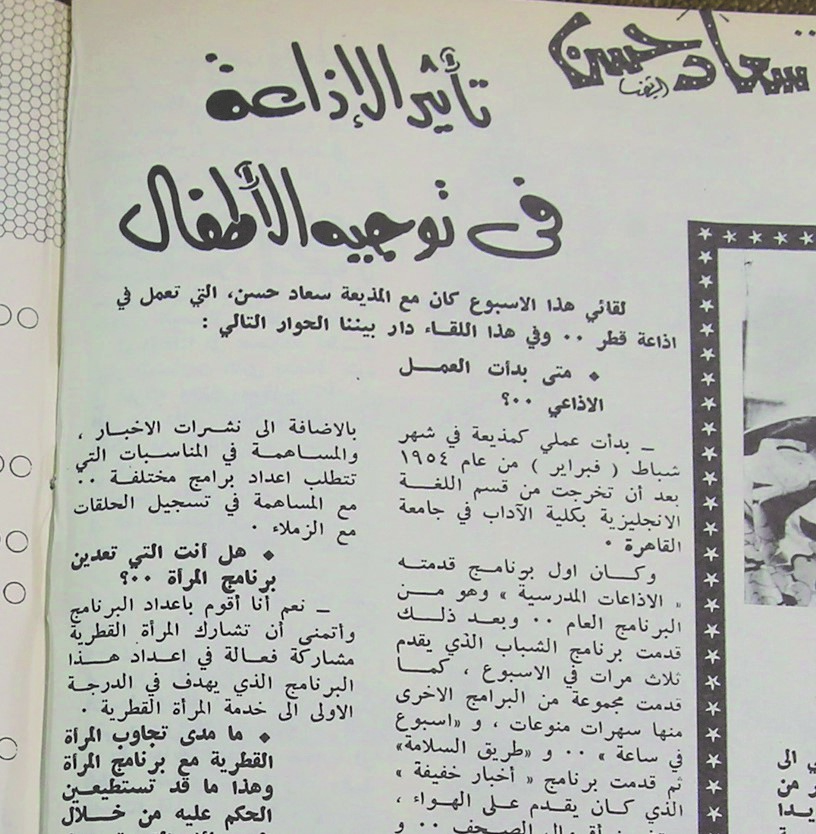 سعاد حسن
تأثير الإذاعة
في توجيه الأطفال
لقائي هذا الاسبوع كان مع المذيعة سعاد حسن، التي تعمل في
اذاعة قطر ٠٠ وفي هذا اللقاء دار بيننا الحوار التالي :
◆ متى بدأت العمل
الاذاعي ٠٠؟
ــ بدأت عملي كمذيعة في شهر
شباط ( فبراير ) من عام ١٩٥٤
بعد أن تخرجت من قسم اللغة
الانجليزية بكلية الآداب في جامعة
القاهرة ٠
وكان اول برنامج قدمته
« الاذاعات المدرسية » وهو من
البرنامج العام ٠٠ وبعد ذلك
قدمت برنامج الشباب الذي يقدم
ثلاث مرات في الاسبوع ، كما
قدمت مجموعة من البرامج الاخرى
منها سهرات منوعات ، و «اسبوع
في ساعة » ٠٠ و «طريق السلامة»
ثم قدمت برنامج « أخبار خفيفة »
الذي كان يقدم على الهواء ،
الصحف ٠٠ و
بالاضافة الى نشرات الاخبار ،
والمساهمة في المناسبات التي
تتطلب اعداد برامج مختلفة ٠٠
مع المساهمة في تسجيل الحلقات
مع الزملاء ٠
◆ هل أنت التي تعدين
برنامج المرأة ٠٠؟
ــ نعم أنا أقوم باعداد البرنامج
وأتمنى أن تشارك المرأة القطرية
مشاركة فعالة في اعداد هذا
البرنامج الذي يهدف في الدرجة
الاولى الى خدمة المرأة القطرية ٠
◆ ما مدى تجاوب المرأة
القطرية مع برنامج المرأة
وهذا ما قد تستطيعين
الحكم عليه من خلال